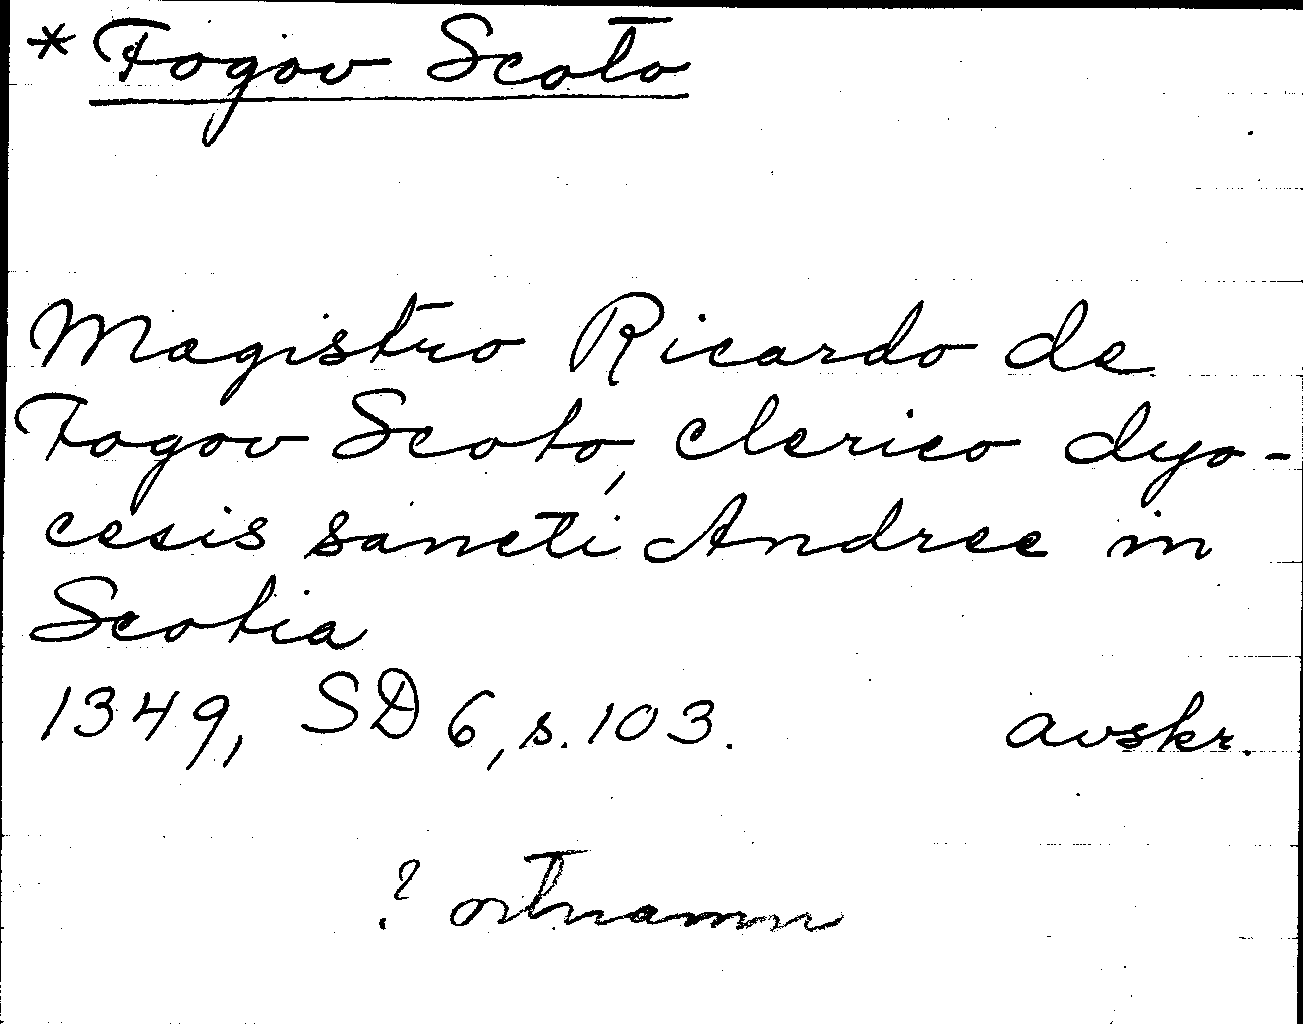 * Fogov Scoto
Magistro Ricardo de
Fogov Scoto, clerico dyo-
cesis sancti Andree in
Scotia
1349, SD 6, s. 103. avskr.
? ortnamn